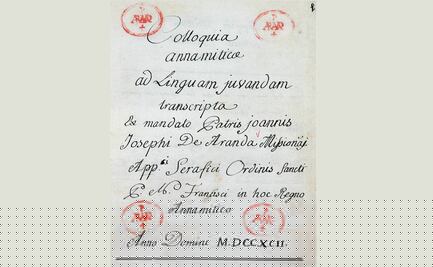 Colloquia
annamitica
ad Linguam juvandam
transcripta
Ex mandato Patris Joannis
Josephi De Aranda Missionaj
App.ci Serafici Ordinis Sancti
P. N. Francisci in hoc Regno
Annamitico
Anno Domine M.DCCXCII.